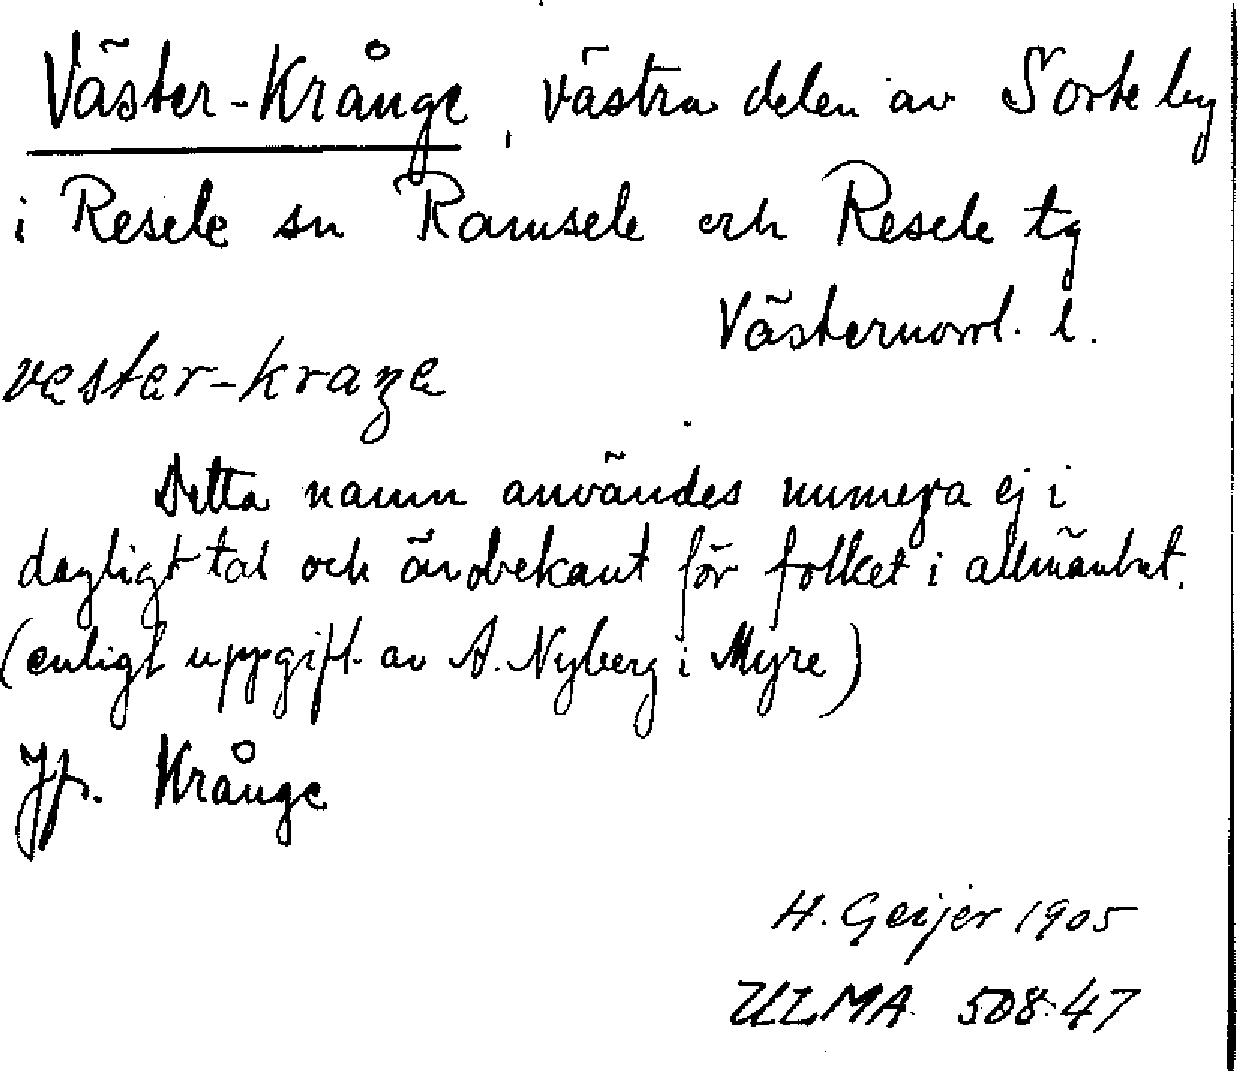 Väster-Krånge, västra delen av Sörte by
i Resele sn Ramsele och Resele tg
Västernorrl. l.
vester-kraŋe
Detta namn användes numera ej i
dagligt tal och är obekant för folket i allmänhet.
(enligt uppgift av A. Nyberg i Myre)
Jfr. Krånge
H. Geijer 1905
ULMA 508:47